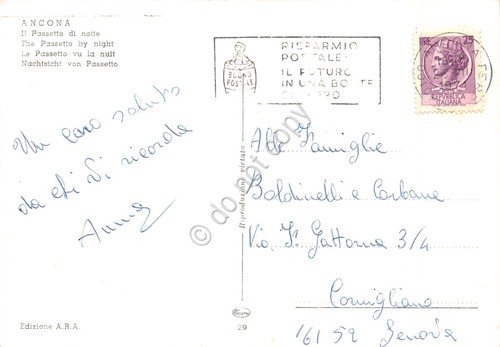 ANCONA
Il Passetto di notte
The Passetto by night
Le Passetto vu la nuit
Nachtsicht von Passetto
RISPARMIO
POSTALE:
IL FUTURO
IN UNA BOTTE
BUONO
POSTALE
LIRE 25
REPUBBLICA
ITALIANA
Un caro saluto
da chi Vi ricorda
Anna
Alle Famiglie
Boldinelli e Carbone
Via F. Gattorna 3/4
Cornigliano
16152 Genova
Riproduzione vietata
do not copy
Edizione A.R.A.
29